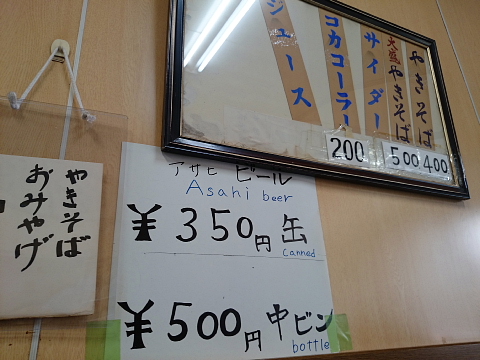 やきそば
大盛やきそば
サイダー
コカコーラ
ジュース
400
500
200
アサヒ ビール
Asahi beer
¥350円 缶
canned
¥500円 中ビン
bottle
やきそば
おみやげ